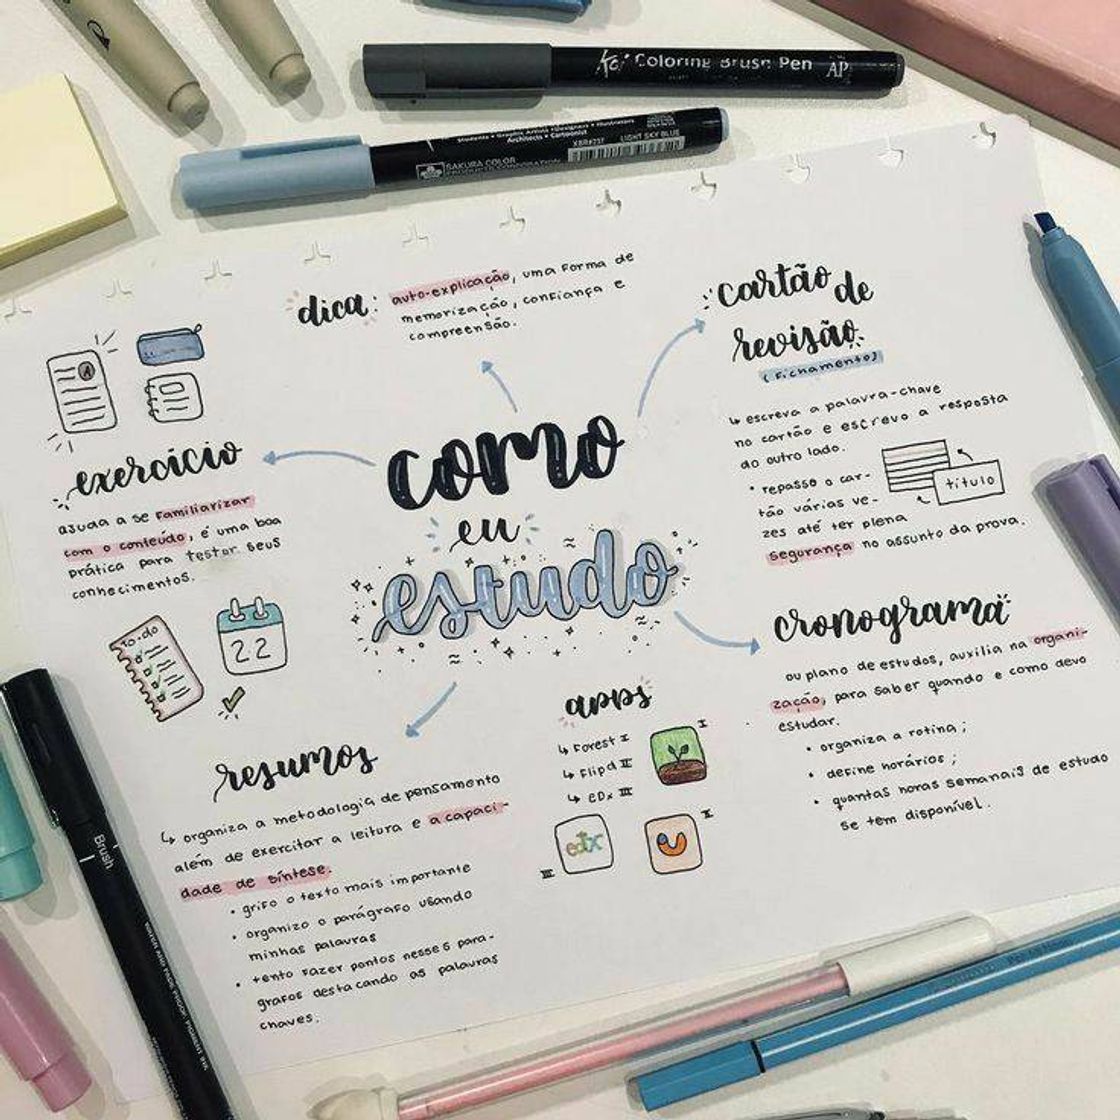 Coloring Brush Pen
AP
Architects • Cartoonist
LIGHT SKY BLUE
XBR#737
SAKURA COLOR
PRODUCTS CORPORATION
dica:
auto-explicação, uma forma de
memorização, confiança e
compreensão.
cartão de
revisão
(fichamento)
↳ escreva a palavra-chave
no cartão e escrevo a resposta
do outro lado.
• repasso o car-
tão várias ve-
zes até ter plena
segurança no assunto da prova.
título
A
exercício
ajuda a se familiarizar
com o conteúdo, é uma boa
prática para testar seus
conhecimentos.
como
eu
estudo
to-do
22
cronograma
ou plano de estudos, auxilia na organi-
zação, para saber quando e como devo
estudar.
• organiza a rotina;
• define horários;
• quantas horas semanais de estudo
se tem disponível.
apps
↳ Forest I
↳ Flipd II
↳ eDx III
I
II
edx
III
resumos
↳ organiza a metodologia de pensamento
além de exercitar a leitura e a capaci-
dade de síntese.
• grifo o texto mais importante
• organizo o parágrafo usando
minhas palavras
• tento fazer pontos nesses pará-
grafos destacando as palavras
chaves.
Brush